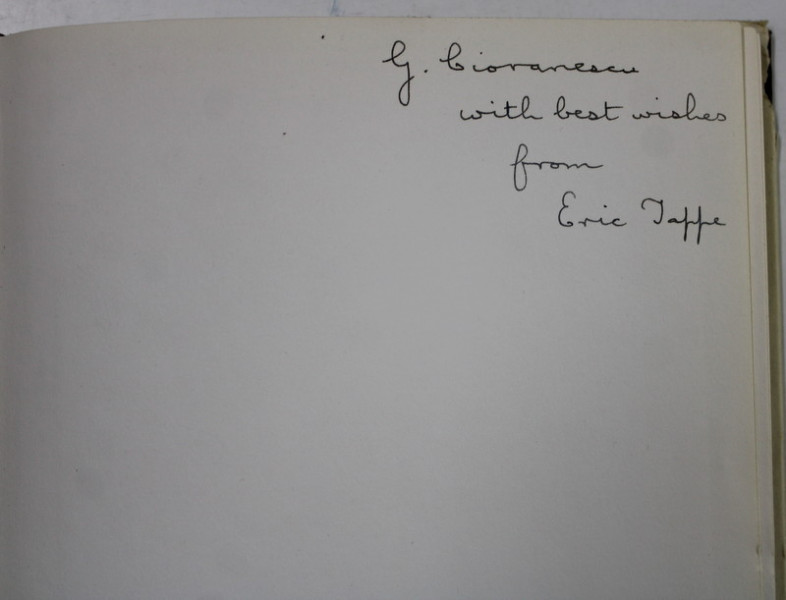 G. Cioranescu
with best wishes
from
Eric Tappe